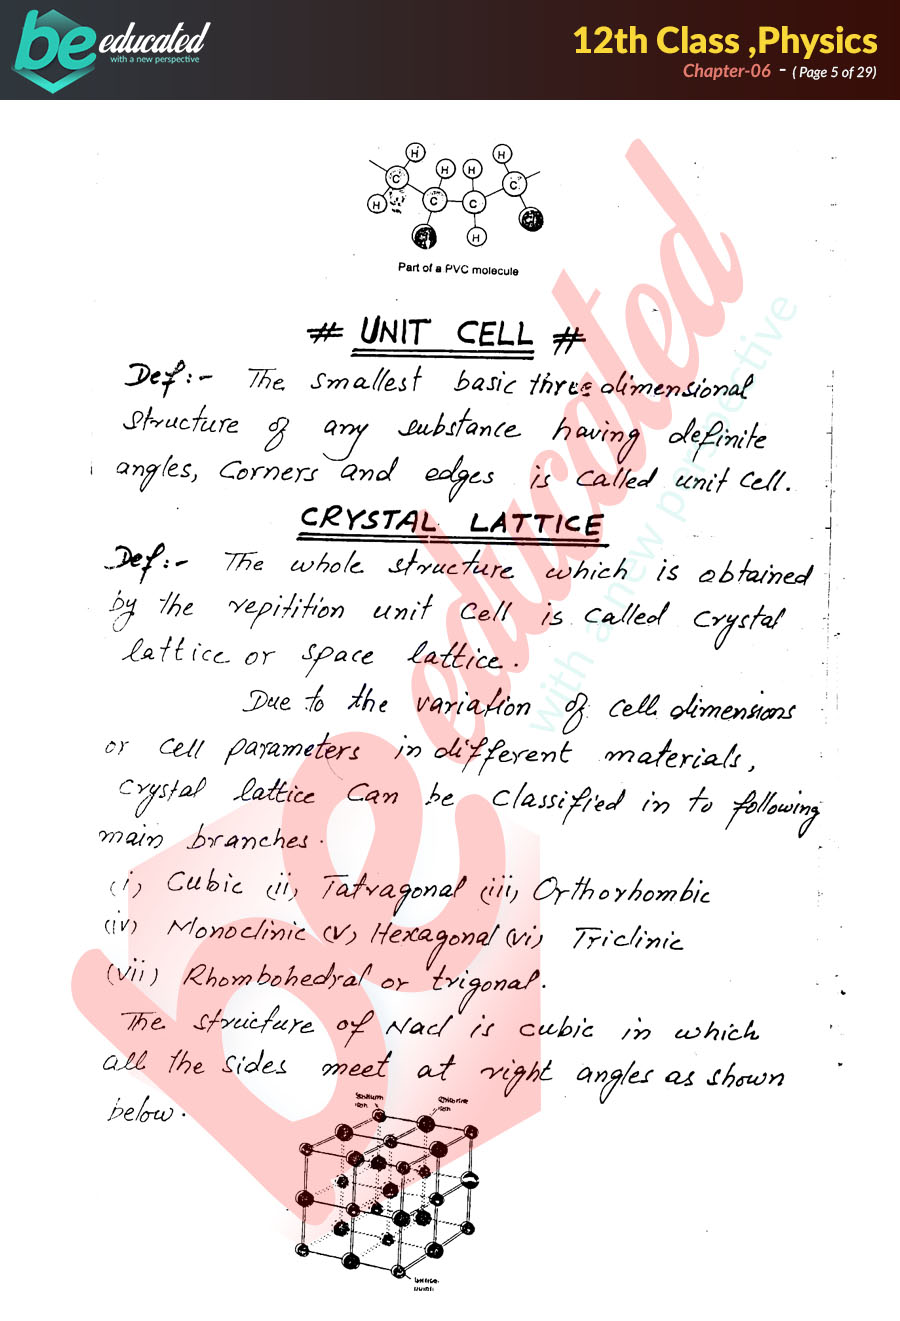 be educated
with a new perspective
12th Class ,Physics
Chapter-06 - ( Page 5 of 29)
H H H H
C C C C
H Cl H Cl
Part of a PVC molecule
# UNIT CELL #
Def:- The smallest basic three dimensional
structure of any substance having definite
angles, Corners and edges is called unit Cell.
CRYSTAL LATTICE
Def:- The whole structure which is obtained
by the repitition unit Cell is called Crystal
lattice or space lattice.
Due to the variation of cell dimensions
or cell parameters in different materials,
Crystal lattice Can be Classified in to following
main branches.
(i) Cubic (ii) Tatragonal (iii) Orthorhombic
(iv) Monoclinic (v) Hexagonal (vi) Triclinic
(vii) Rhombohedral or trigonal.
The structure of Nacl is cubic in which
all the sides meet at right angles as shown
below.
Sodium ion
Chlorine ion
be educated
with a new perspective